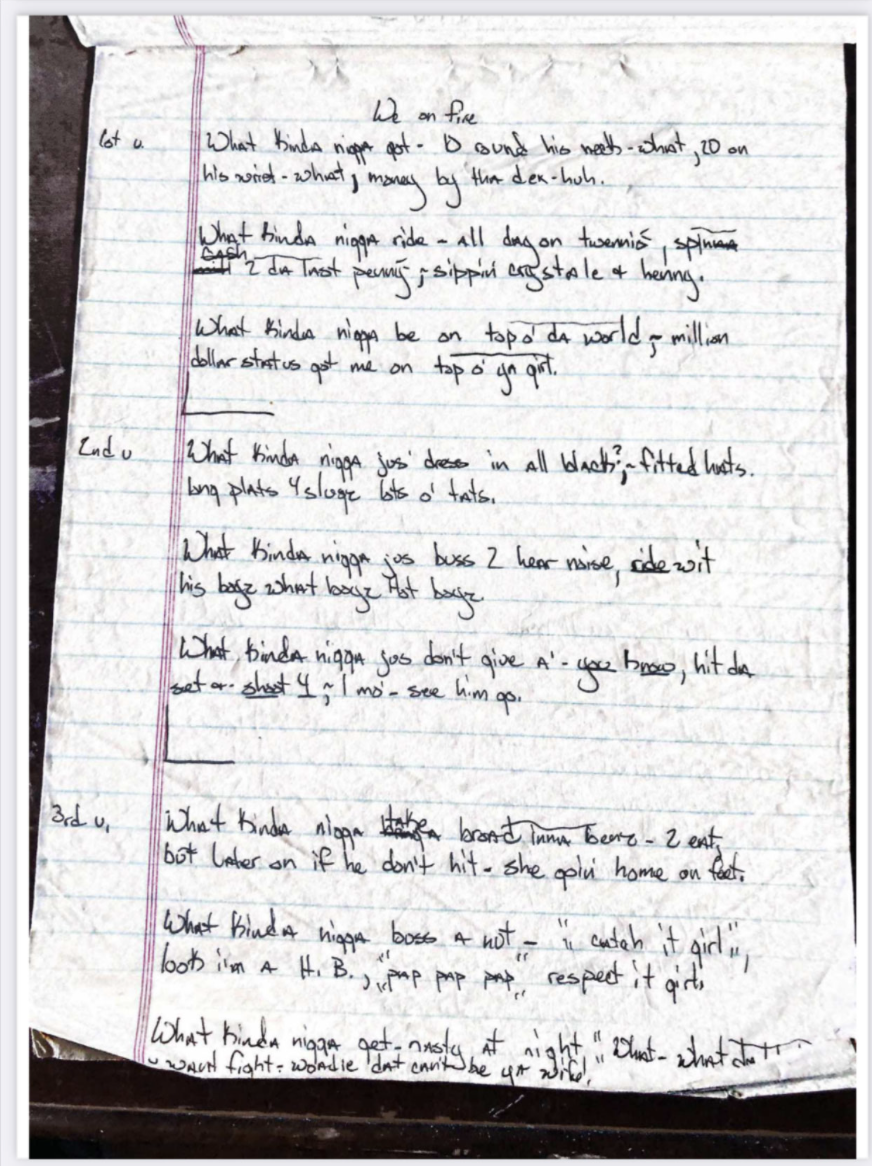 We on fire
1st v. What kinda nigga got - 10 round his neck - what, 20 on
his wrist - what, money by tha dex - huh.
What kinda nigga ride - all day on twennis, spinna
cash 2 da last penny, - sippin crystale & henny.
What kinda nigga be on top o' da world, - million
dollar status got me on top o' ya girl.
2nd v What kinda nigga jus' dress in all black?, - fitted hats.
long plats 4 slugz lots o' tats.
What kinda nigga jus buss 2 hear noise, ride wit
his boyz what boyz Hot boyz.
What kinda nigga jus don't give A' - you know, hit da
set or shoot 4, - 1 mo' - see him go.
3rd v. What kinda nigga take broad inna benz - 2 eat,
but later on if he don't hit - she goin' home on feet.
What kinda nigga boss a nut - "catch it girl",
look i'm a H.B., "pap pap pap" respect it girl.
What kinda nigga get - nasty at night "What - what da
u want fight - woadie dat can't be ya wife!